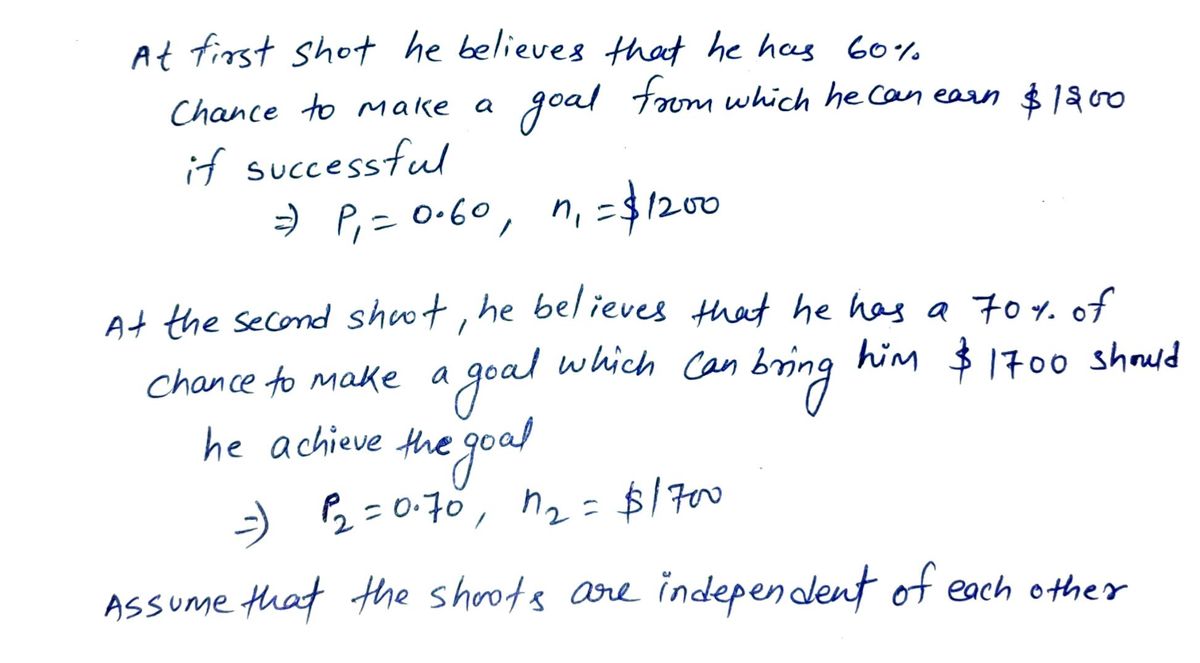 At first shot he believes that he has 60%
Chance to make a goal from which he can earn $1200
if successful
⇒ P₁ = 0.60, n₁ = $1200
At the second shoot, he believes that he has a 70% of
chance to make a goal which can bring him $1700 should
he achieve the goal
⇒ P₂ = 0.70, n₂ = $1700
Assume that the shoots are independent of each other